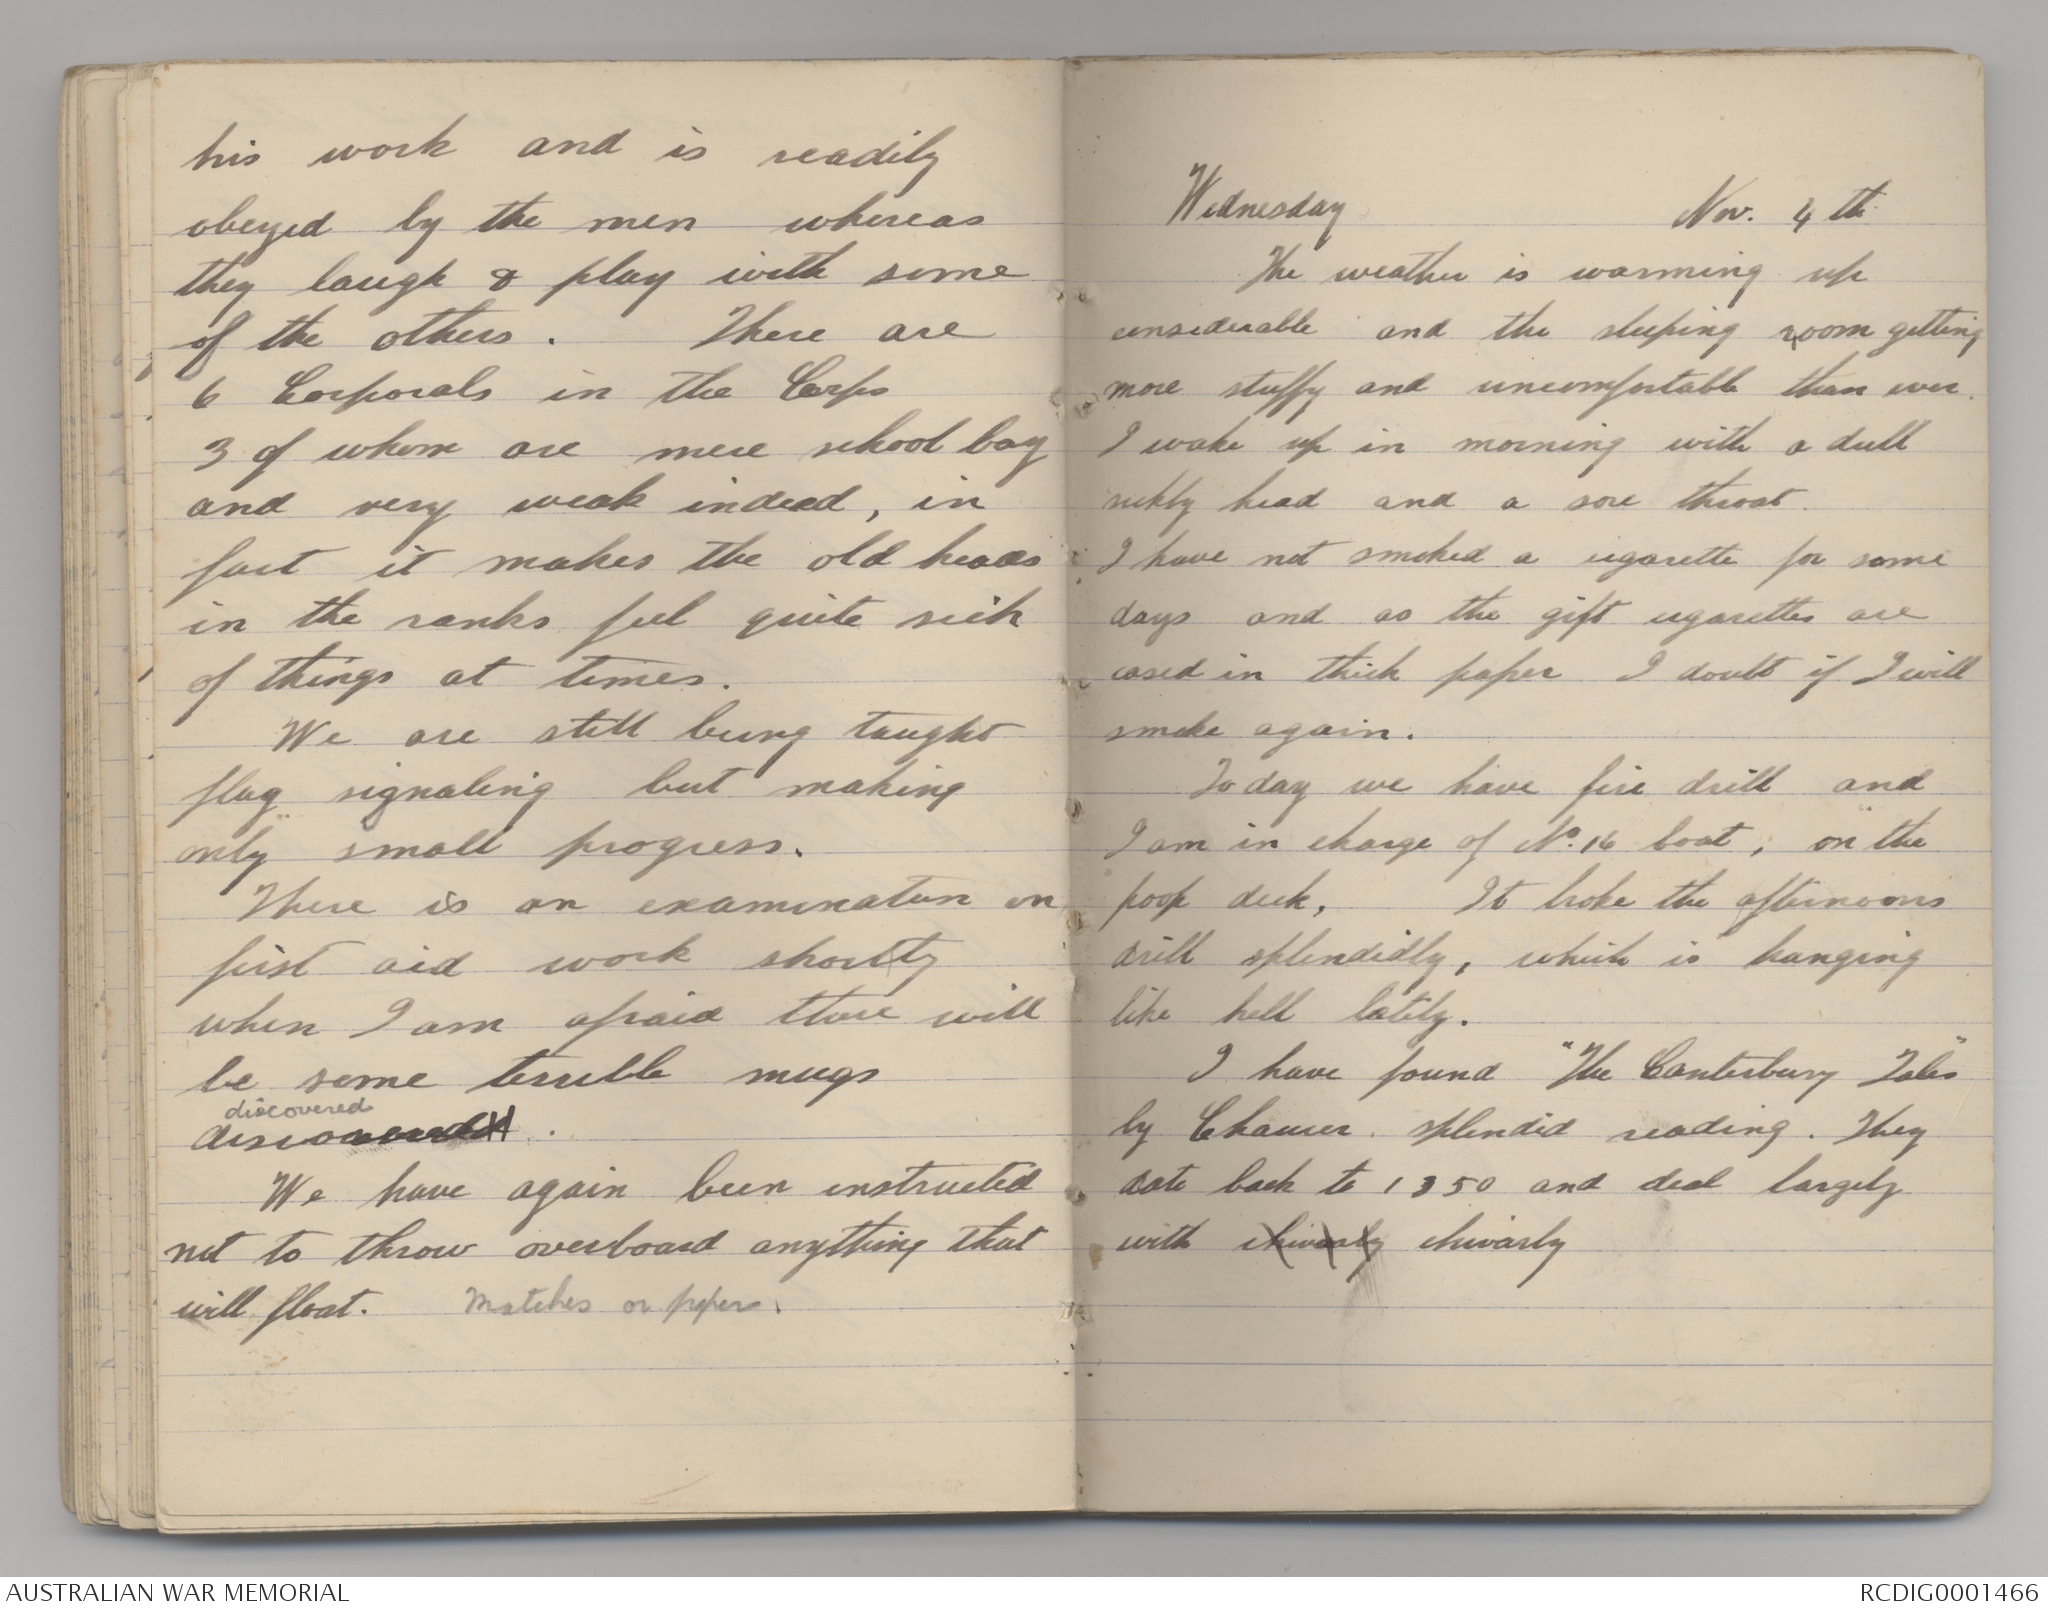 his work and is readily
obeyed by the men whereas
they laugh & play with some
of the others. There are
6 Corporals in the Corps
3 of whom are mere school boy
and very weak indeed, in
fact it makes the old heads
in the ranks feel quite sick
of things at times.
We are still being taught
flag signaling but making
only small progress.
There is an examination on
first aid work shortly
when I am afraid there will
be some terrible mugs
discovered
.
We have again been instructed
not to throw overboard anything that
will float. Matches or papers.
Wednesday Nov. 4th
The weather is warming up
considerable and the sleeping room getting
more stuffy and uncomfortable than ever.
I wake up in morning with a dull
sickly head and a sore throat.
I have not smoked a cigarette for some
days and as the gift cigarettes are
cased in thick paper I doubt if I will
smoke again.
To day we have fire drill and
I am in charge of No. 16 boat, on the
poop deck, It broke the afternoons
drill splendidly, which is hanging
like hell lately.
I have found "The Canterbury Tales"
by Chaucer splendid reading. They
date back to 1350 and deal largely
with chivarly chivarly
AUSTRALIAN WAR MEMORIAL
RCDIG0001466